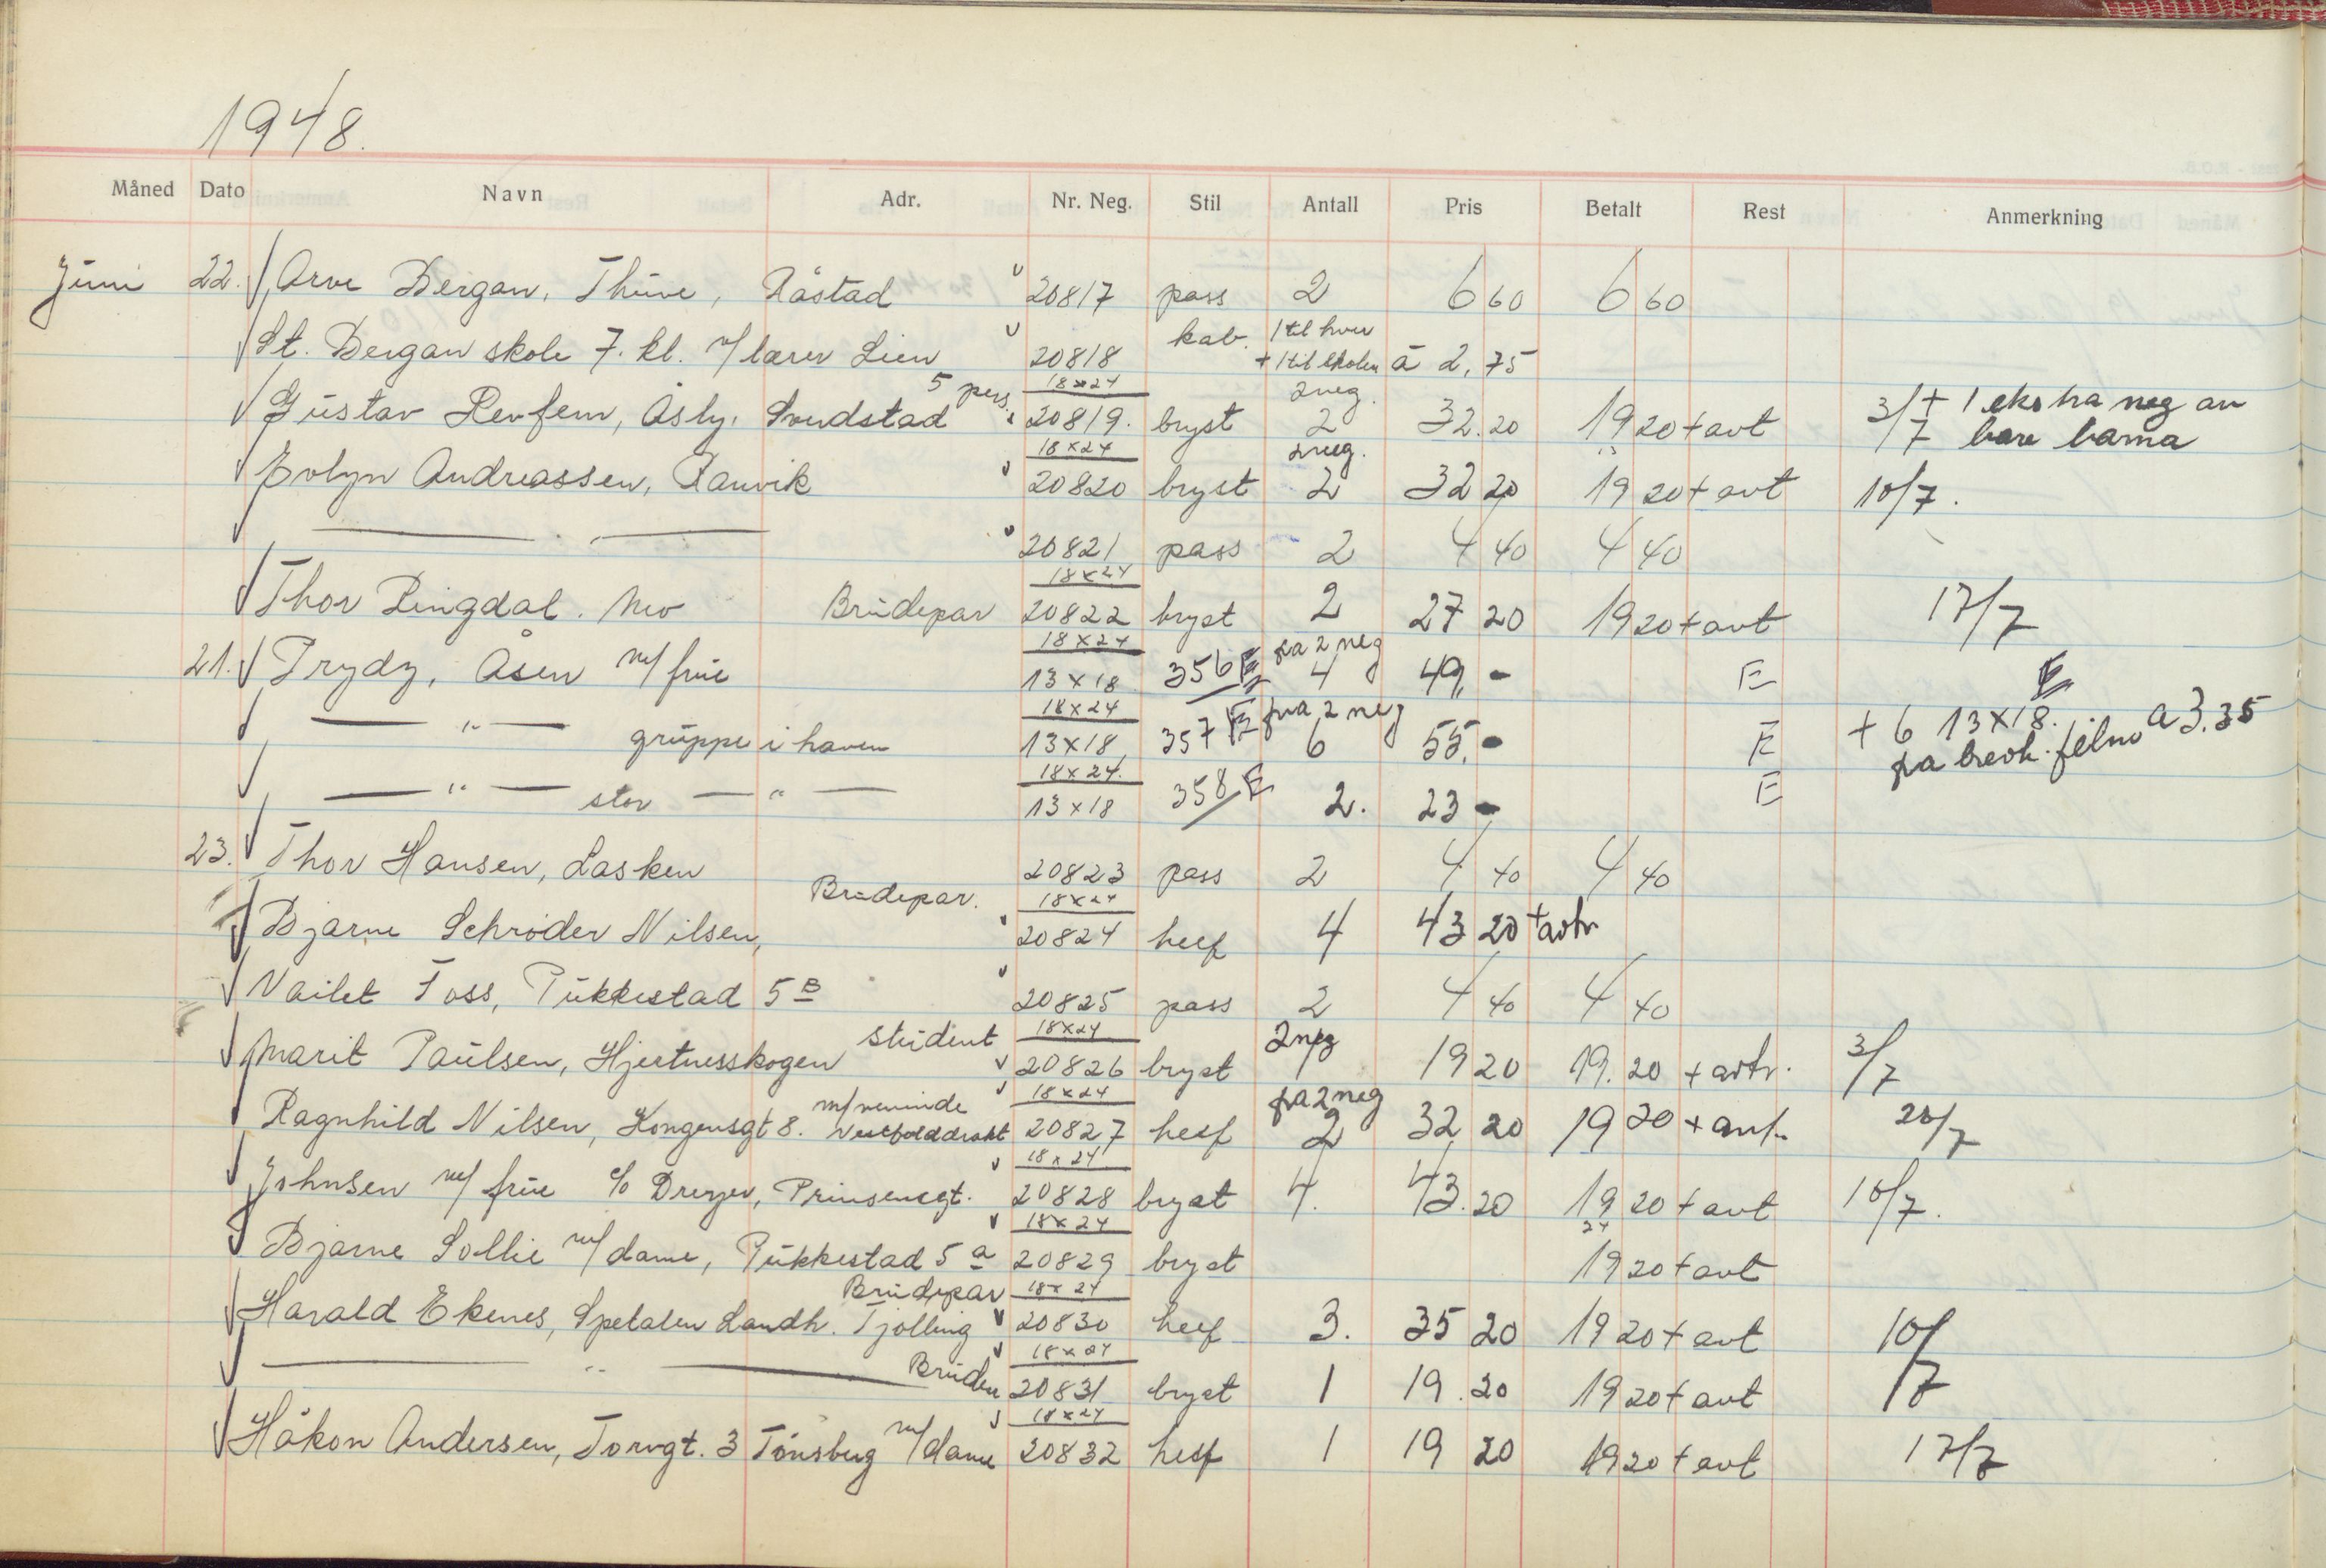 1948.
Måned Dato Navn Adr. Nr. Neg. Stil Antall Pris Betalt Rest Anmerkning
Juni 22. Arve Bergan, Thune, Råstad 20817 pass 2 6 60 6 60
St. Bergan skole 7. kl. m/ lærer Lien 20818 kab. 1 til hver + 1 til skolen à 2,75
Gustav Revfem, Åsly, Sverdstad 5 pers. 18x24 20819. bryst 2 neg. 2 32.20 19 20 + avt 3/7 + 1 ekstra neg av bare barna
Evlyn Andreassen, Ranvik 18x24 20820 bryst 2 neg. 2 32 20 19 20 + avt 10/7.
20821 pass 2 4 40 4 40
Thor Ringdal. Mo Brudepar 18x24 20822 bryst 2 27 20 19 20 + avt 17/7
21. Prydz, Åsen m/ frue 18x24 13x18 356 E fra 2 neg 4 49,- E
— " — gruppe i haven 18x24 13x18 357 E fra 2 neg 6 55,- E + 6 13x18. à 3.35
— " — stor — " — 18x24. 13x18 358 E 2. 23 - E
23. Thor Hansen, Lasken 20823 pass 2 4 40 4 40
Bjarne Schrøder Nilsen, Brudepar. 18x24 20824 helf 4 43 20 + avtr
Vailet Foss, Pukkestad 5 B 20825 pass 2 4 40 4 40
Marit Paulsen, Hjertnesskogen student 18x24 20826 bryst 2 neg 1 19 20 19. 20 + avtr. 3/7
Ragnhild Nilsen, Kongensgt 8. m/ veninde Vestfolddrakt 18x24 20827 helf fra 2 neg 2 32 20 19 20 + avt. 20/7
Johnsen m/ frue c/o Dreyer, Prinsensgt. 18x24 20828 bryst 4. 43.20 19 20 + avt 10/7.
Bjarne Sollie m/ dame, Pukkestad 5 a 18x24 20829 bryst 19 20 + avt
Harald Ekenes, Spetalen Landh. Tjølling Brudepar 18x24 20830 helf 3. 35 20 19 20 + avt 10/7
— " — Bruden 18x24 20831 bryst 1 19.20 19 20 + avt
Håkon Andersen, Torvgt. 3 Tønsberg m/ dame 18x24 20832 helf 1 19 20 19 20 + avt 17/7